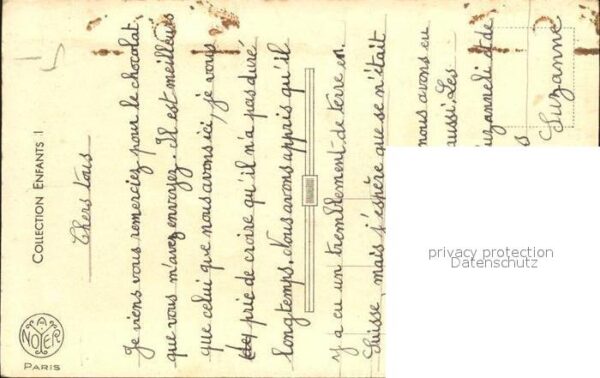 COLLECTION ENFANTS 1
Chers tous
Je viens vous remerciez pour le chocolat
que vous m'avez envoyez. Il est meilleurs
que celui que nous avons ici, je vous
prie de croire qu'il n'a pas duré
longtemps. Nous avons appris qu'il
y a eu un tremblement de terre en
Suisse, mais j'espère que se n'était
nous avons eu
aussi. Les
Suzanneli et de
Suzanne
A NOYER
PARIS
privacy protection
Datenschutz